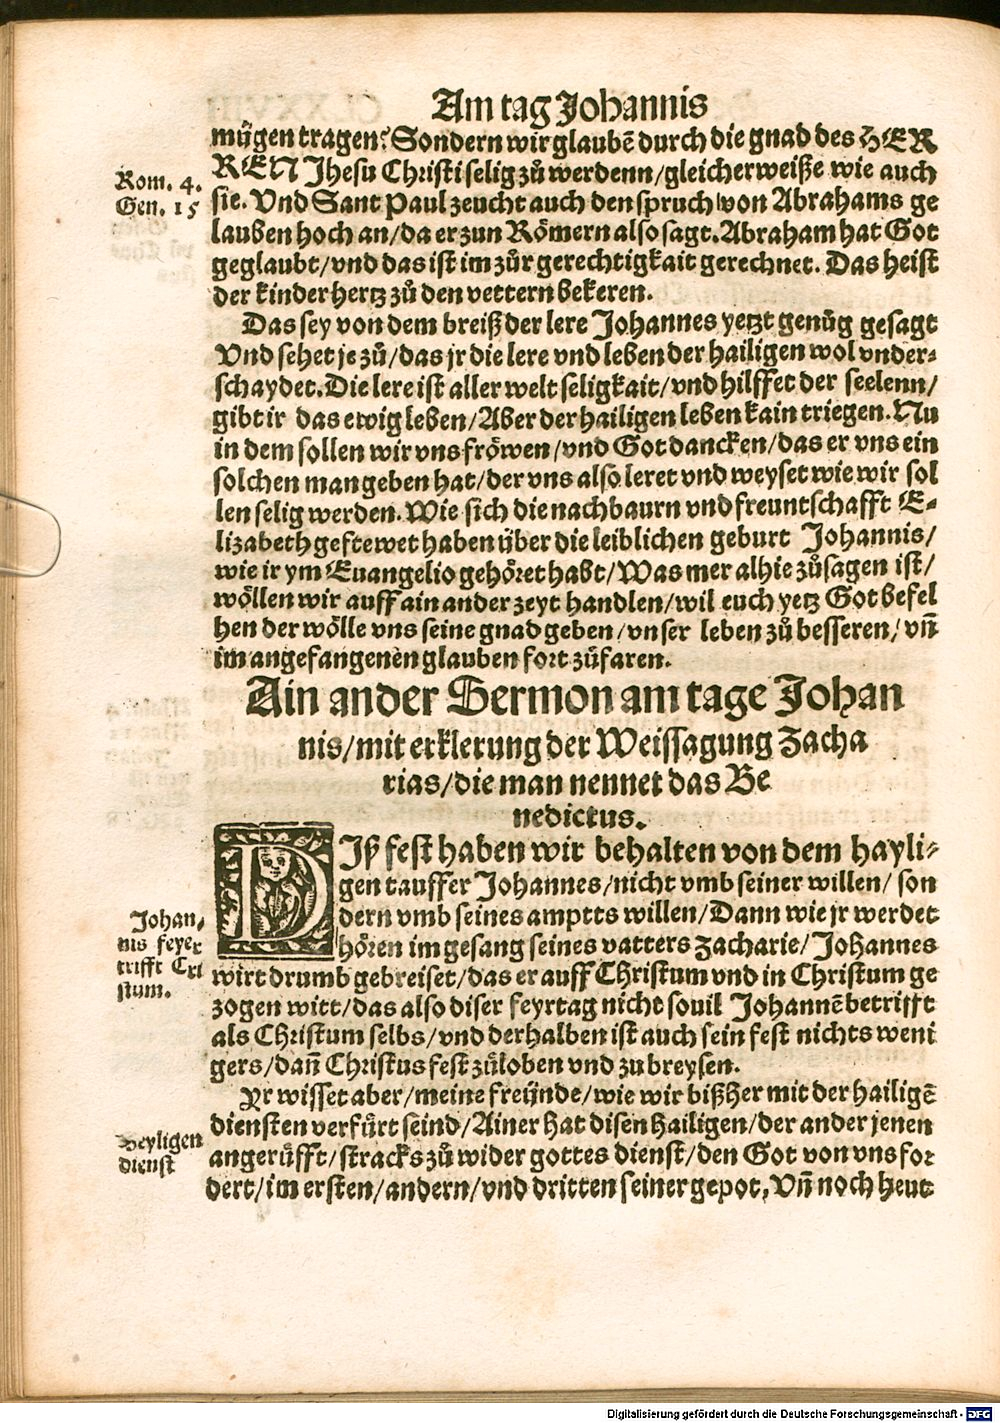 Am tag Johannis
mügen tragen? Sondern wir glaubẽ durch die gnad des HER
REN Jhesu Christi selig zů werdenn/gleicher weiße wie auch
Rom. 4.
Gen. 15
sie. Vnd Sant Paul zeucht auch den spruch von Abrahams ge
lauben hoch an/da er zun Römern also sagt. Abraham hat Got
geglaubt/vnd das ist im zůr gerechtigkait gerechnet. Das heist
der kinder hertz zů den vettern bekeren.
Das sey von dem breiß der lere Johannes yetzt genůg gesagt
Vnd sehet je zů/das jr die lere vnd leben der hailigen wol vnder-
schaydet. Die lere ist aller welt seligkait/vnd hilffet der seelenn/
gibt ir das ewig leben/Aber der hailigen leben kain triegen. Nu
in dem sollen wir vns fröwen/vnd Got dancken/das er vns ein
solchen man geben hat/der vns also leret vnd weyset wie wir sol
len selig werden. Wie sich die nachbaurn vnd freuntschafft E-
lizabeth geftewet haben über die leiblichen geburt Johannis/
wie ir ym Euangelio gehöret habt/Was mer alhie zůsagen ist/
wöllen wir auff ain ander zeyt handlen/wil euch yetz Got befel
hen der wölle vns seine gnad geben/vnser leben zů besseren/vñ
im angefangenen glauben fort zůfaren.
Ain ander Sermon am tage Johan
nis/mit erklerung der Weissagung Zacha
rias/die man nennet das Be
nedictus.
DIß fest haben wir behalten von dem hayli-
gen tauffer Johannes/nicht vmb seiner willen/ son
dern vmb seines amptts willen/Dann wie jr werdet
hören im gesang seines vatters Zacharie/Johannes
Johan-
nis feyer
trifft Cri
stum.
wirt drumb gebreiset/das er auff Christum vnd in Christum ge
zogen witt/das also diser feyrtag nicht souil Johannẽ betrifft
als Christum selbs/vnd derhalben ist auch sein fest nichts weni
gers/dañ Christus fest zůloben vnd zu breysen.
Yr wisset aber/meine freünde/wie wir bißher mit der hailigẽ
diensten verfürt seind/Ainer hat disen hailigen/der ander jenen
Heyligen
dienst
angerüfft/stracks zů wider gottes dienst/den Got von vns for
dert/im ersten/andern/vnd dritten seiner gepot, Vñ noch heut
Digitalisierung gefördert durch die Deutsche Forschungsgemeinschaft - DFG